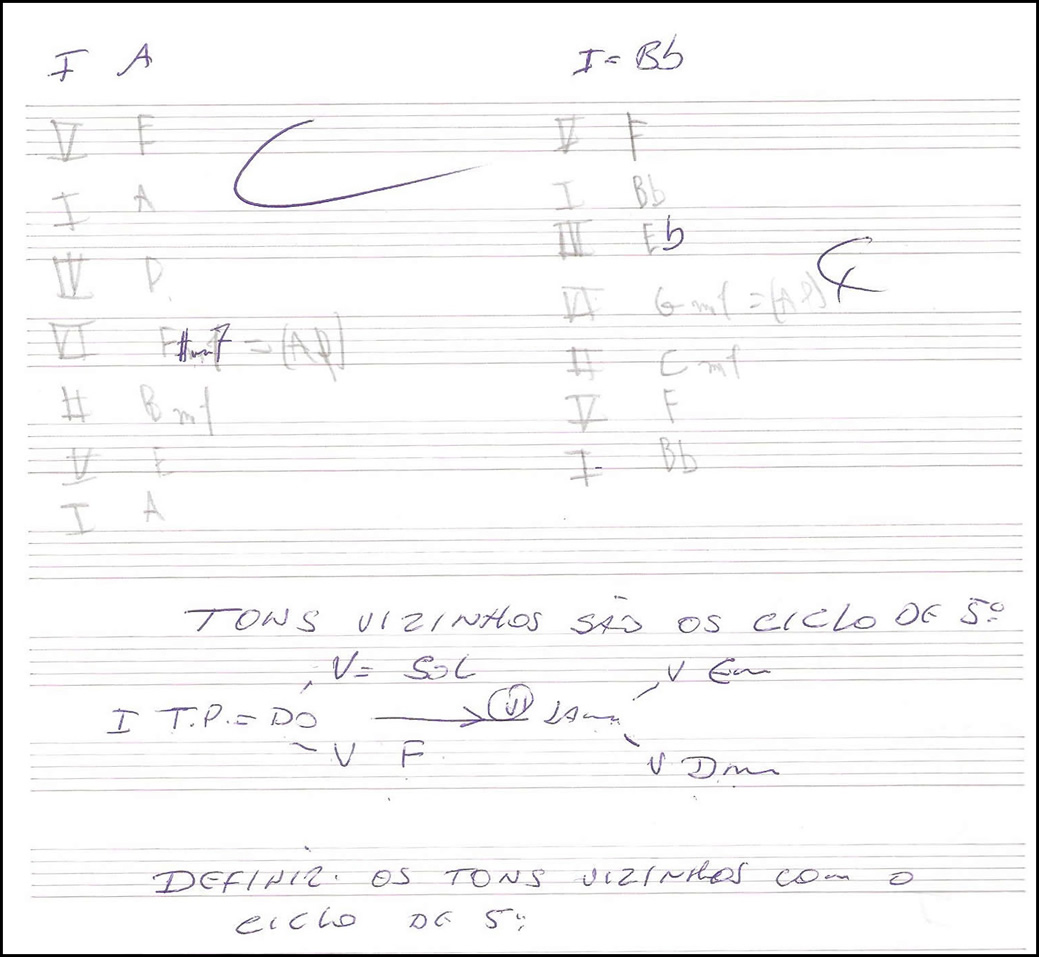 I A
V E
I A
IV D
VI F#m7 = (AP)
II Bm7
V E
I A
I = Bb
V F
I Bb
III Eb
VI Gm7 = (AP)
II Cm7
V F
I Bb
TONS VIZINHOS SÃO OS CICLO DE 5º
V = SOL
V Em
I T.P. = DO
VI LAm
V F
V Dm
DEFINIR OS TONS VIZINHOS COM O
CICLO DE 5º